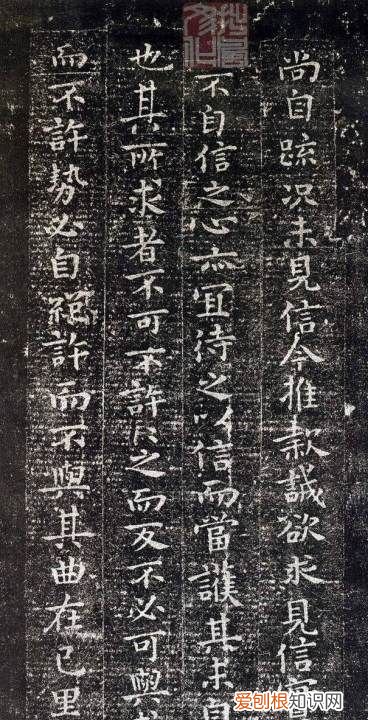 尚自踈况未見信今推款誠欲求見信
不自信之心亦宜待之以信而當護其未自
也其所求者不可不許〻之而反不必可與
而不許勢必自絕許而不與其曲在己里
爱刨根知识网